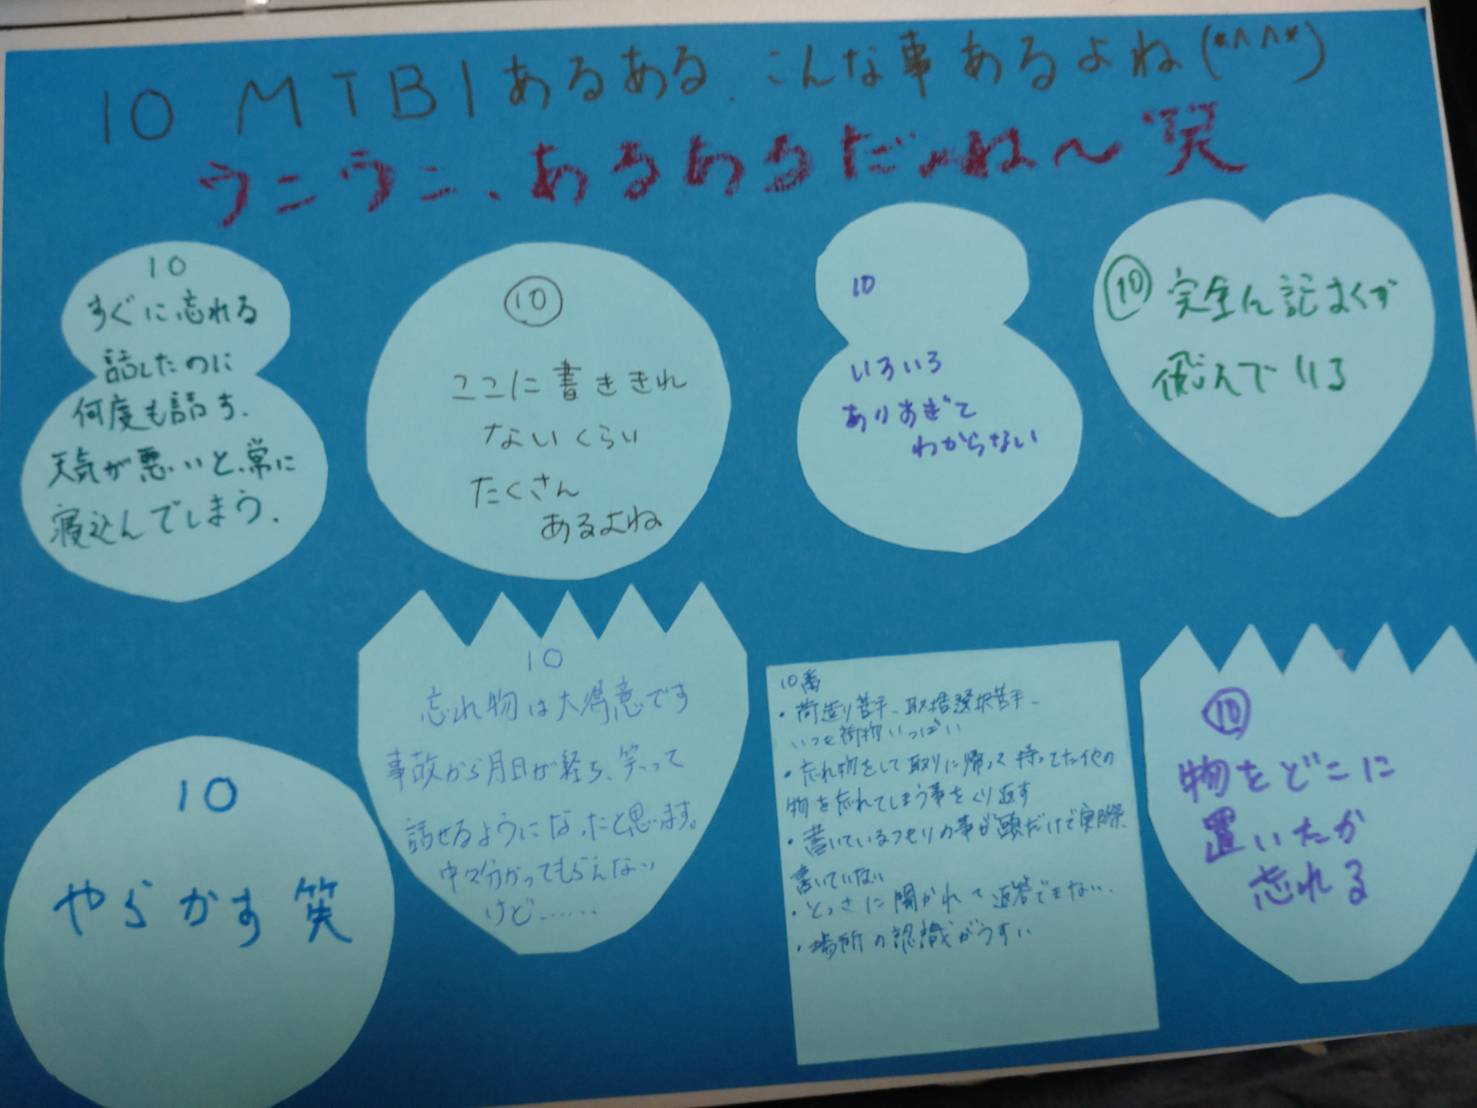 10 MTBIあるある、こんな事あるよね(*^^*)
ウンウン、あるあるだよね〜笑
10
すぐに忘れる
話したのに
何度も話す、
天気が悪いと、常に
寝込んでしまう。
⑩
ここに書ききれ
ないくらい
たくさん
あるよね
10
いろいろ
ありすぎて
わからない
⑩ 完全ん記まくが
飛んでいる
10
やらかす 笑
10
忘れ物は大得意です
事故から月日が経ち、笑って
話せるようになったと思います。
中々分かってもらえない
けど……
10番
・荷造り苦手、取捨選択苦手、
いつも荷物いっぱい
・忘れ物をして取りに帰って持ってた他の
物を忘れてしまう事をくり返す
・書いているつもりの事が頭だけで実際
書いていない
・とっさに聞かれて返答できない、
・場所の認識がうすい
⑩
物をどこに
置いたか
忘れる